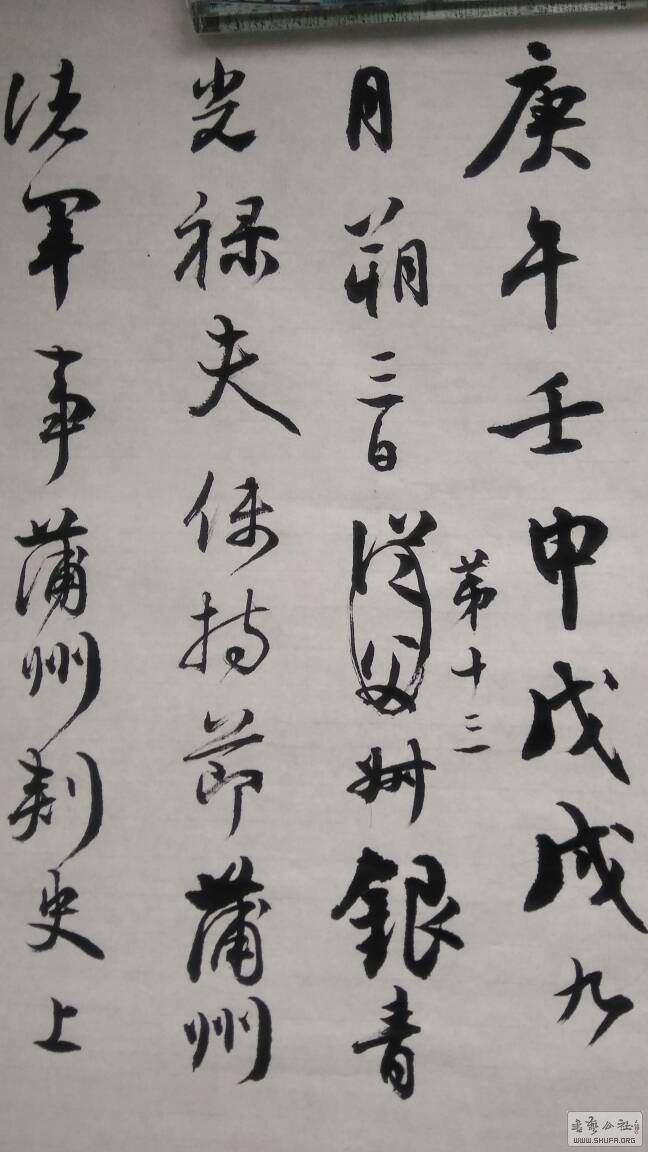 庚午壬申戊戌九
第十三
月朔三日從父叔銀青
光祿夫使持節蒲州
諸軍事蒲州刺史上
書藝公社
WWW.SHUFA.ORG